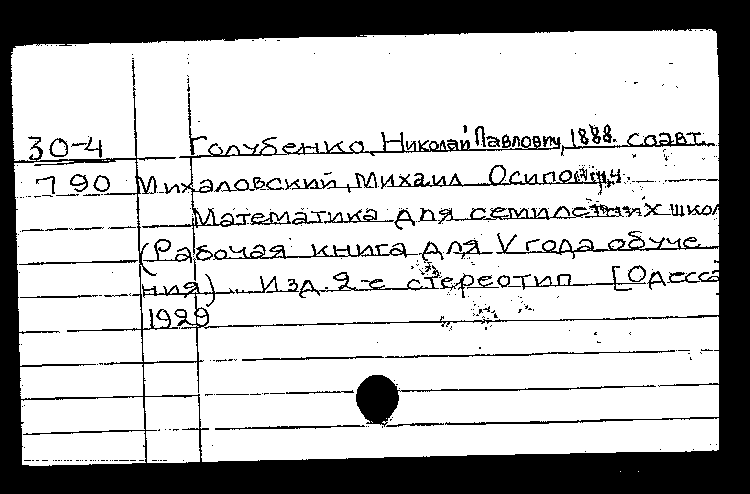 30-4 Голубенко, Николай Павлович, 1888. соавт.
790 Михаловский, Михаил Осипович
Математика для семилетних школ
(Рабочая книга для V года обуче
ния) ... Изд. 2-е стереотип [Одесса
1929